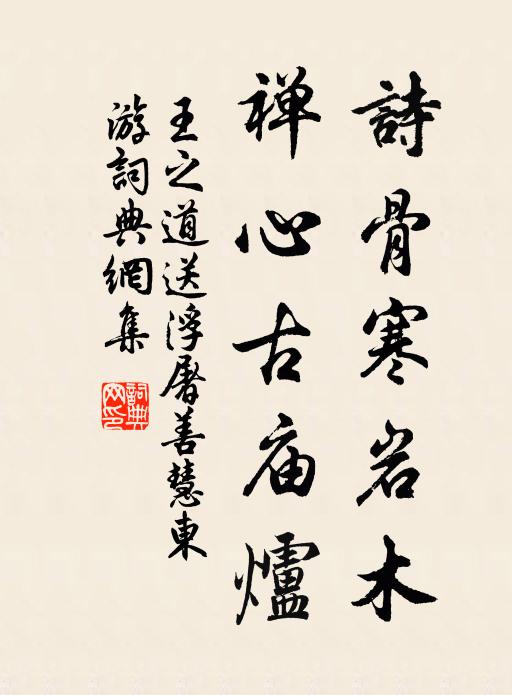 詩骨寒岩木
禅心古庙爐
王之道送浮屠善慧東
游詞典網集
詞典网印